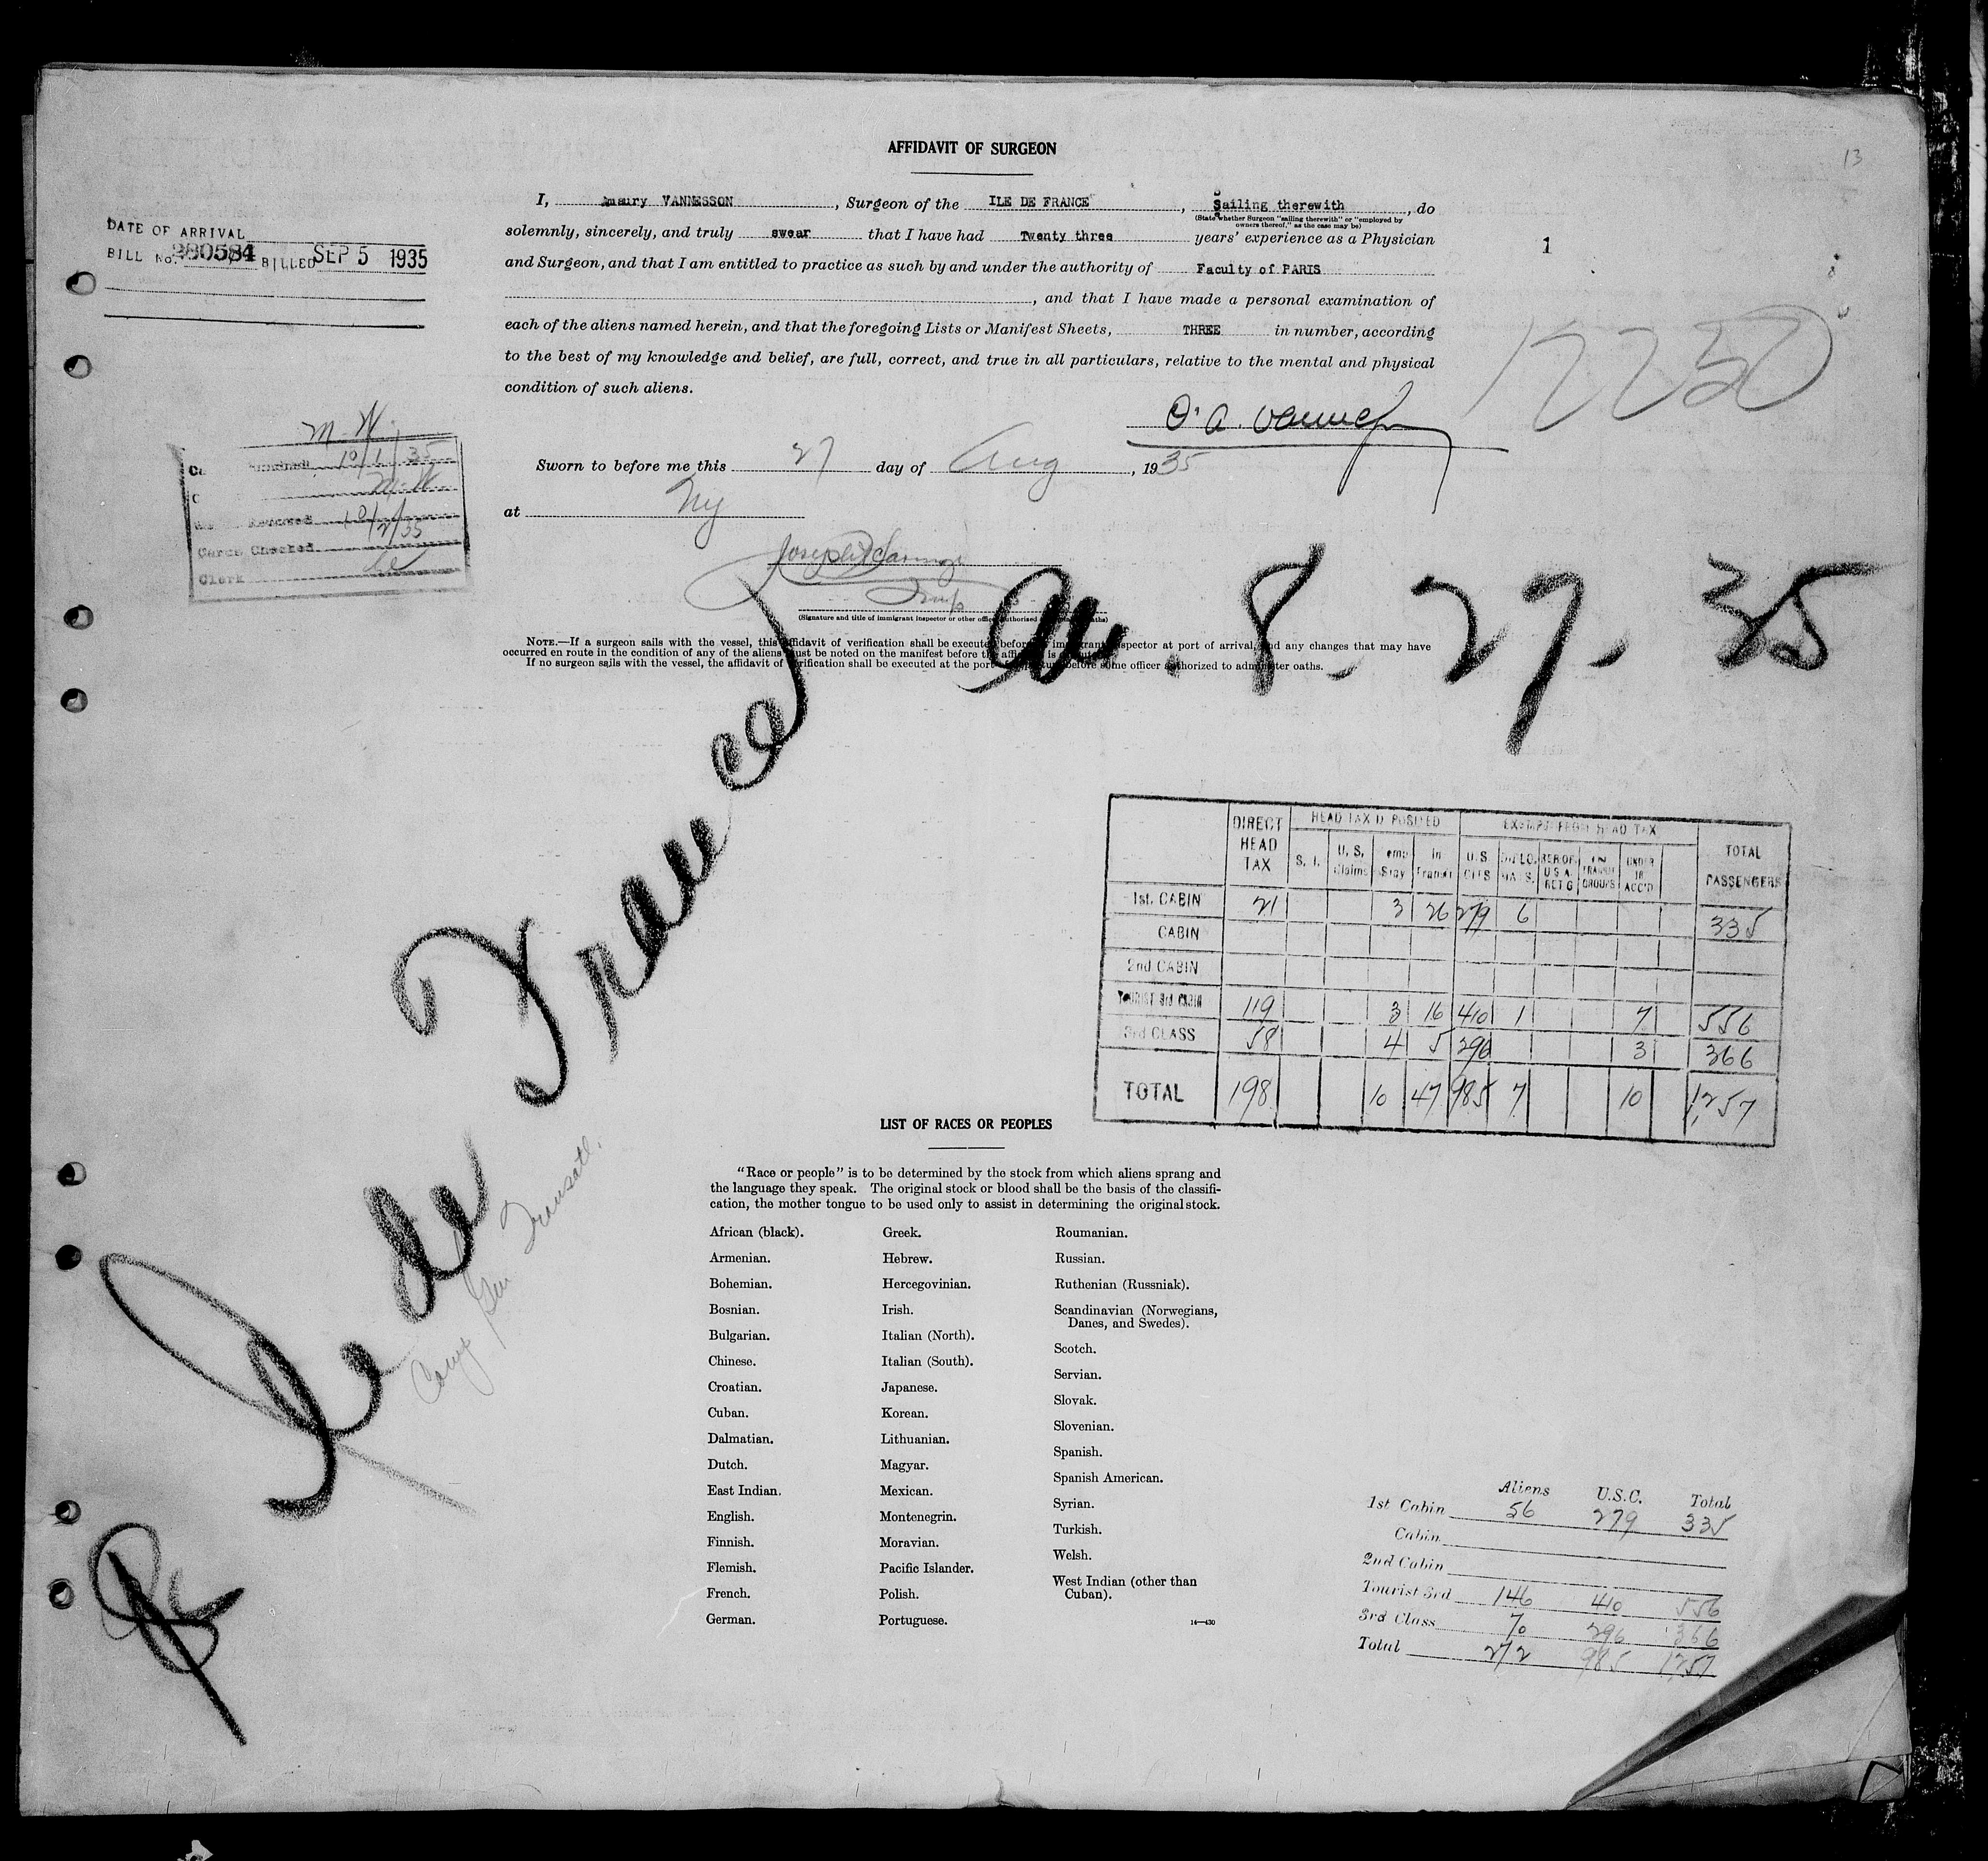 13
AFFIDAVIT OF SURGEON
I, Amaury VANNESSON, Surgeon of the ILE DE FRANCE, Sailing therewith, do
(State whether Surgeon "sailing therewith" or "employed by
owners thereof," as the case may be)
solemnly, sincerely, and truly swear that I have had Twenty three years' experience as a Physician
and Surgeon, and that I am entitled to practice as such by and under the authority of Faculty of PARIS
, and that I have made a personal examination of
each of the aliens named herein, and that the foregoing Lists or Manifest Sheets, THREE in number, according
to the best of my knowledge and belief, are full, correct, and true in all particulars, relative to the mental and physical
condition of such aliens.
DATE OF ARRIVAL
BILL No. 280584 BILLED SEP 5 1935
1
12230
M.W.
10/1/35
M.W
Reviewed 10/2/35
Cards Checked
Clerk
Sworn to before me this 27 day of Aug, 1935
at Ny
(Signature and title of immigrant inspector or other officer authorized
NOTE.—If a surgeon sails with the vessel, this affidavit of verification shall be executed before immigrant inspector at port of arrival, and any changes that may have
occurred en route in the condition of any of the aliens must be noted on the manifest before the affidavit is
If no surgeon sails with the vessel, the affidavit of verification shall be executed at the port before some officer authorized to administer oaths.
8. 27. 35
Ile de France
Comp Gen Transatl.
DIRECT HEAD TAX
HEAD TAX DEPOSITED
EXEMPT FROM HEAD TAX
TOTAL PASSENGERS
S. I. U. S. Claims Temp Stay In Transit U.S. CITS. DIPLOMATS. RER OF U S A RET'G IN TRANSIT GROUPS UNDER 16 ACC'D
1st. CABIN 21 3 26 279 6 335
CABIN
2nd CABIN
TOURIST 3rd CABIN 119 3 16 410 1 7 556
3rd CLASS 58 4 5 296 3 366
TOTAL 198 10 47 985 7 10 1,257
LIST OF RACES OR PEOPLES
"Race or people" is to be determined by the stock from which aliens sprang and
the language they speak. The original stock or blood shall be the basis of the classifi-
cation, the mother tongue to be used only to assist in determining the original stock.
African (black).
Armenian.
Bohemian.
Bosnian.
Bulgarian.
Chinese.
Croatian.
Cuban.
Dalmatian.
Dutch.
East Indian.
English.
Finnish.
Flemish.
French.
German.
Greek.
Hebrew.
Hercegovinian.
Irish.
Italian (North).
Italian (South).
Japanese.
Korean.
Lithuanian.
Magyar.
Mexican.
Montenegrin.
Moravian.
Pacific Islander.
Polish.
Portuguese.
Roumanian.
Russian.
Ruthenian (Russniak).
Scandinavian (Norwegians,
Danes, and Swedes).
Scotch.
Servian.
Slovak.
Slovenian.
Spanish.
Spanish American.
Syrian.
Turkish.
Welsh.
West Indian (other than
Cuban).
14—430
Aliens U.S.C. Total
1st Cabin 56 279 335
Cabin
2nd Cabin
Tourist 3rd 146 410 556
3rd Class 70 296 366
Total 272 985 1257